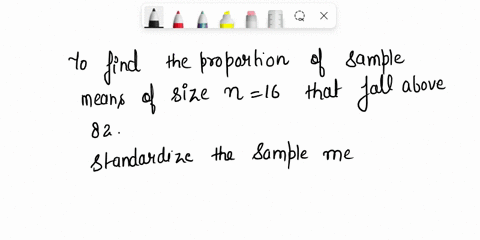 To find the proportion of sample
means of size n = 16 that fall above
82.
Standardize the sample me